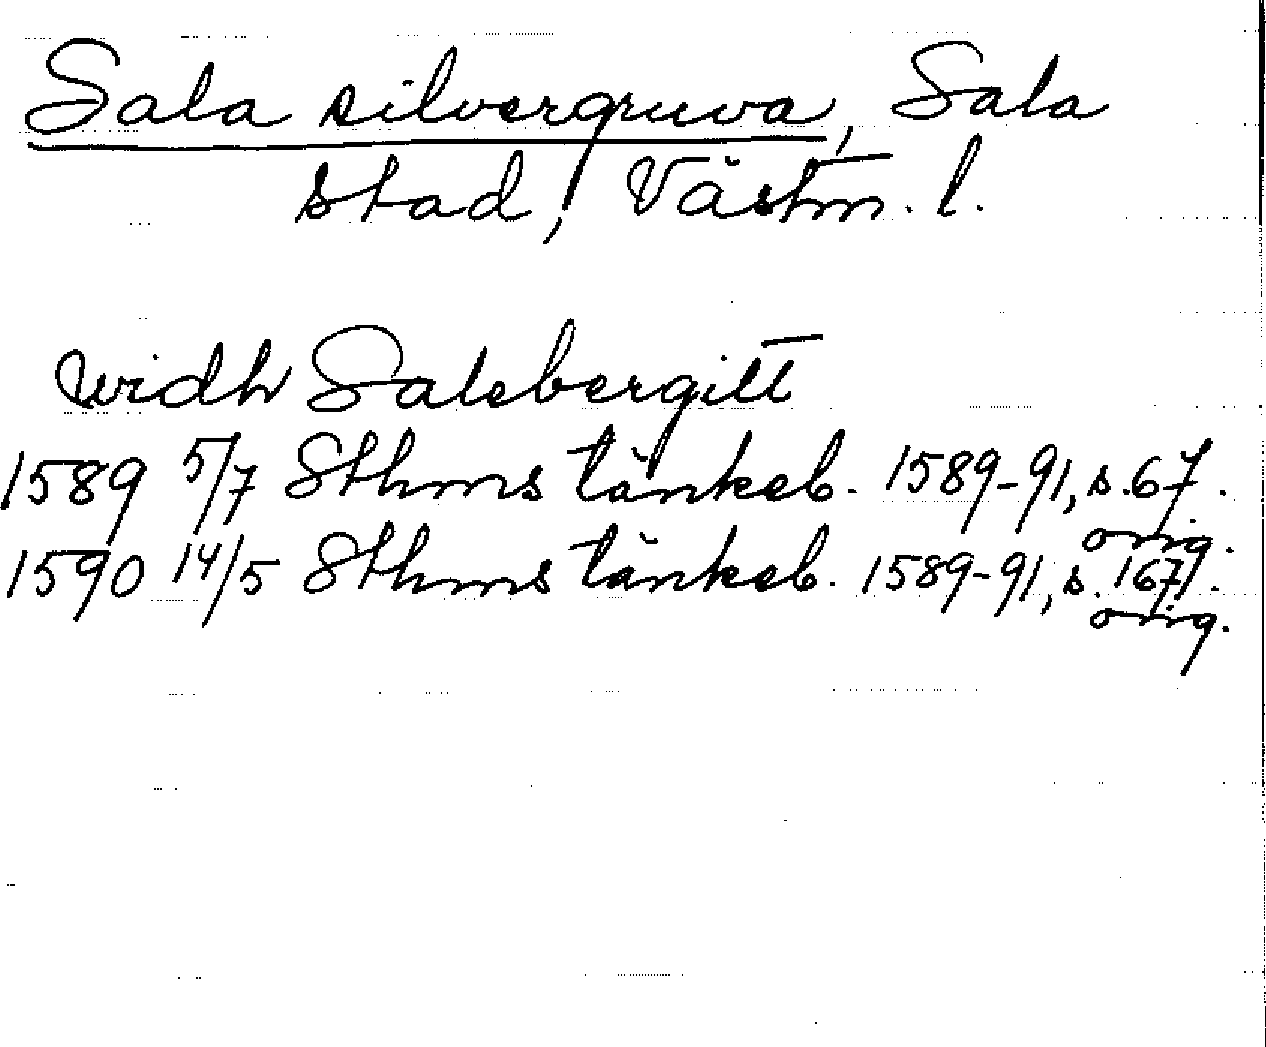 Sala silvergruva, Sala
stad, Västm. l.
widh Salebergitt
1589 5/7 Sthms tänkeb. 1589-91, s. 67.
orig.
1590 14/5 Sthms tänkeb. 1589-91, s. 167.
orig.